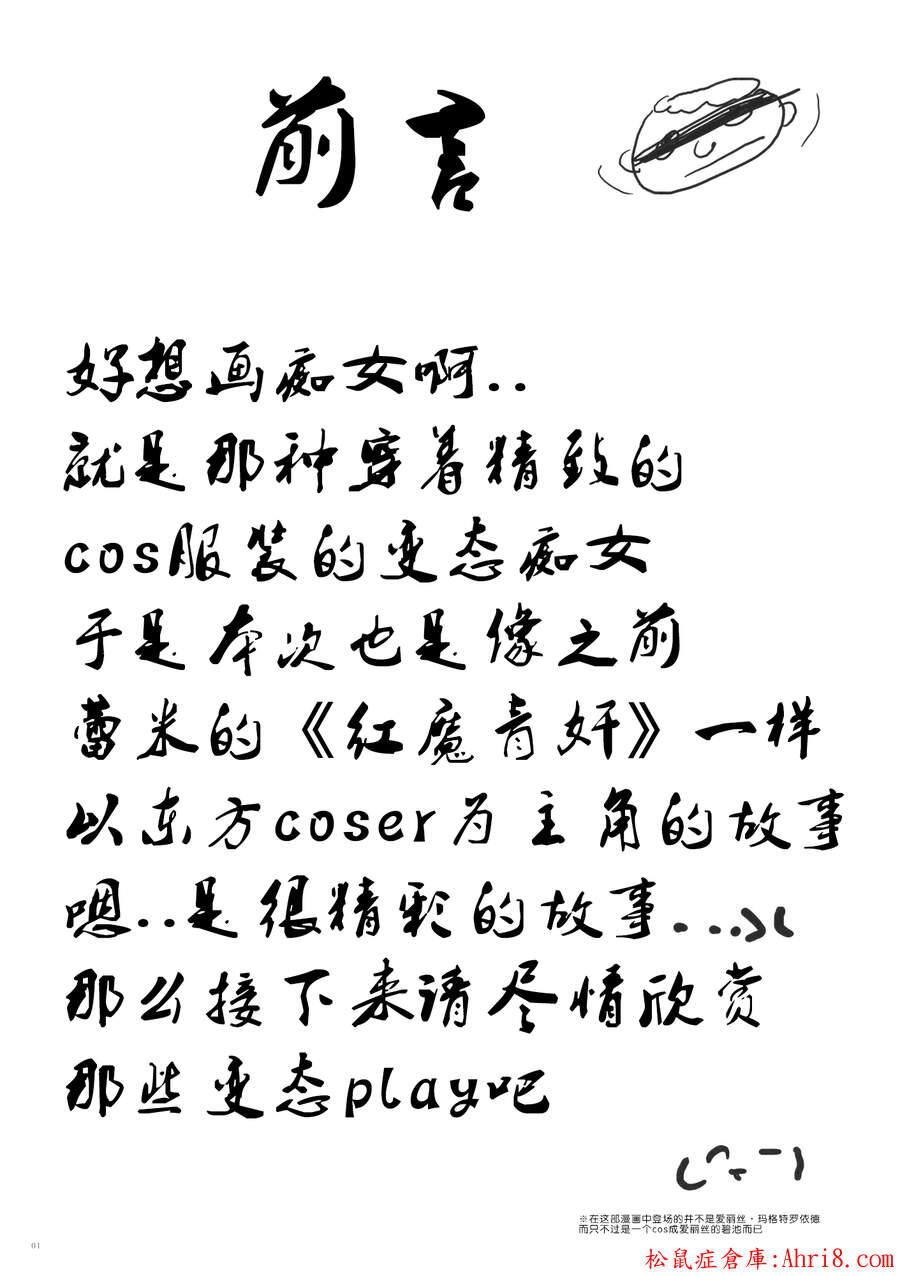 前言
好想画痴女啊..
就是那种穿着精致的
cos服装的变态痴女
于是本次也是像之前
蕾米的《红魔青奸》一样
以东方coser为主角的故事
嗯..是很精彩的故事...
那么接下来请尽情欣赏
那些变态play吧
※在这部漫画中登场的并不是爱丽丝·玛格特罗依德
而只不过是一个cos成爱丽丝的碧池而已
01
松鼠症倉庫:Ahri8.com